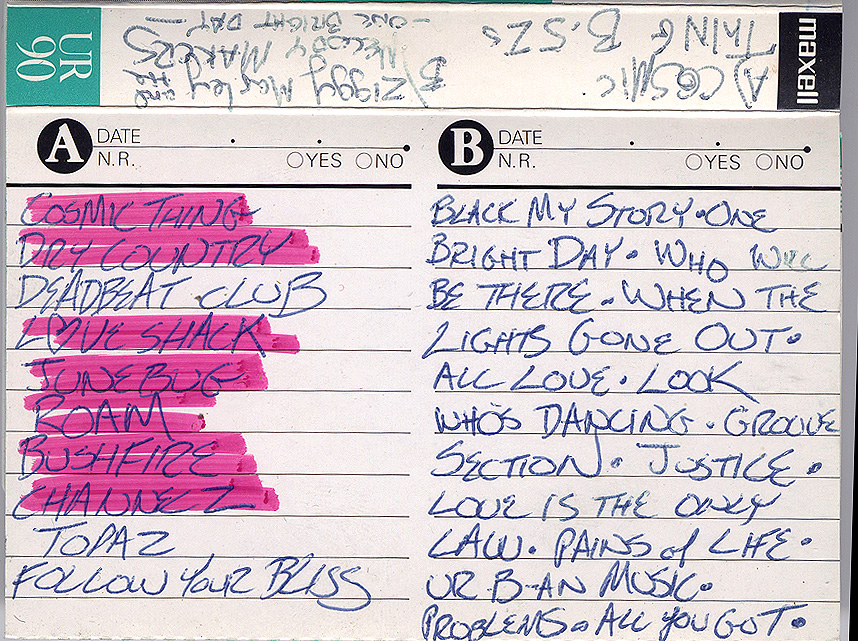 maxell
A) COSMIC
THING B.52s
B) Ziggy Marley and the
MELODY MAKERS
- ONE BRIGHT DAY -
UR
90
A DATE
N.R. YES NO
COSMIC THING
DRY COUNTRY
DEADBEAT CLUB
LOVE SHACK
JUNEBUG
ROAM
BUSHFIRE
CHANNEL Z
TOPAZ
FOLLOW YOUR BLISS
B DATE
N.R. YES NO
BLACK MY STORY • ONE
BRIGHT DAY • WHO WILL
BE THERE • WHEN THE
LIGHTS GONE OUT •
ALL LOVE • LOOK
WHO'S DANCING • GROOVE
SECTION • JUSTICE •
LOVE IS THE ONLY
LAW • PAINS of LIFE •
UR-B-AN MUSIC •
PROBLEMS • ALL YOU GOT •